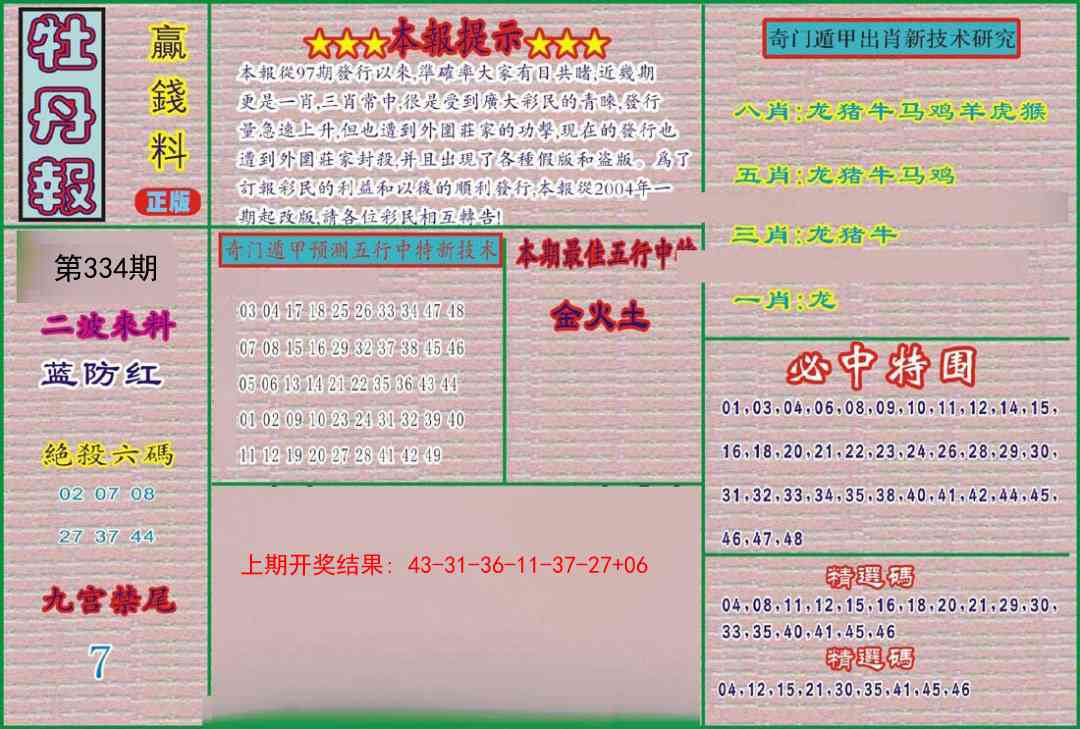 牡丹報
赢錢料
正版
★★★本報提示★★★
本報從97期發行以來,準確率大家有目共睹,近幾期
更是一肖,三肖常中,很是受到廣大彩民的青睞,發行
量急速上升,但也遭到外圍莊家的功擊,現在的發行也
遭到外圍莊家封殺,并且出現了各種假版和盗版。爲了
訂報彩民的利益和以後的順利發行,本報從2004年一
期起改版,請各位彩民相互轉告!
奇门遁甲出肖新技术研究
八肖:龙猪牛马鸡羊虎猴
五肖:龙猪牛马鸡
三肖:龙猪牛
一肖:龙
第334期
二波來料
蓝防红
絕殺六碼
02 07 08
27 37 44
九宫禁尾
7
奇门遁甲预测五行中特新技术
03 04 17 18 25 26 33 34 47 48
07 08 15 16 29 32 37 38 45 46
05 06 13 14 21 22 35 36 43 44
01 02 09 10 23 24 31 32 39 40
11 12 19 20 27 28 41 42 49
本期最佳五行中
金火土
上期开奖结果: 43-31-36-11-37-27+06
必中特围
01,03,04,06,08,09,10,11,12,14,15,
16,18,20,21,22,23,24,26,28,29,30,
31,32,33,34,35,38,40,41,42,44,45,
46,47,48
精選碼
04,08,11,12,15,16,18,20,21,29,30,
33,35,40,41,45,46
精選碼
04,12,15,21,30,35,41,45,46